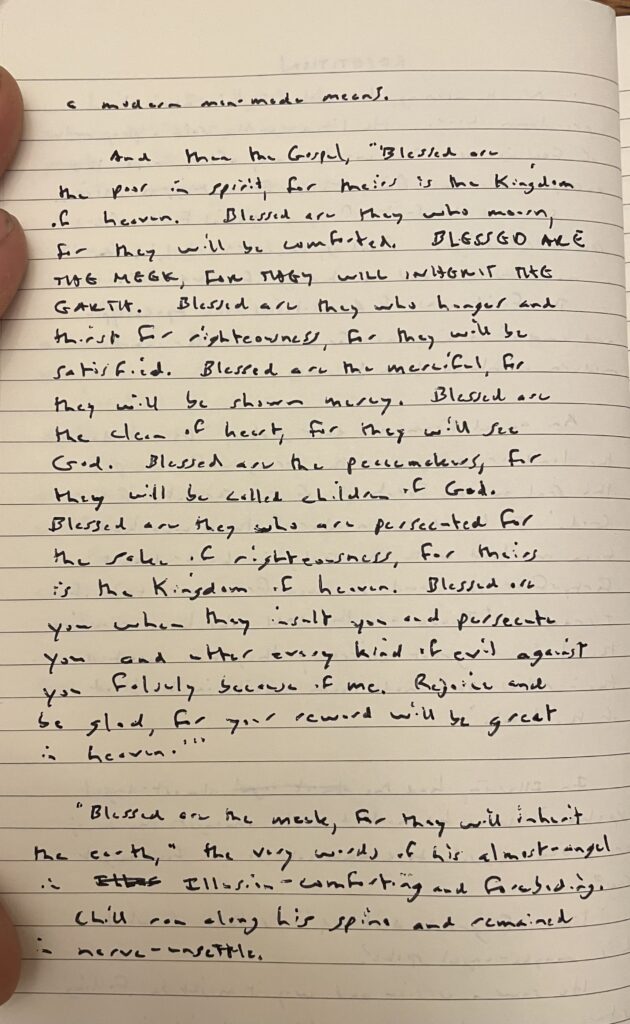 a modern man-made means.
And then the Gospel, "'Blessed are
the poor in spirit, for theirs is the Kingdom
of heaven. Blessed are they who mourn,
for they will be comforted. BLESSED ARE
THE MEEK, FOR THEY WILL INHERIT THE
EARTH. Blessed are they who hunger and
thirst for righteousness, for they will be
satisfied. Blessed are the merciful, for
they will be shown mercy. Blessed are
the clean of heart, for they will see
God. Blessed are the peacemakers, for
they will be called children of God.
Blessed are they who are persecuted for
the sake of righteousness, for theirs
is the Kingdom of heaven. Blessed are
you when they insult you and persecute
you and utter every kind of evil against
you falsely because of me. Rejoice and
be glad, for your reward will be great
in heaven.'"
"Blessed are the meek, for they will inherit
the earth," the very words of his almost-angel
in Illusion-comforting and foreboding.
Chill ran along his spine and remained
in nerve-unsettle.